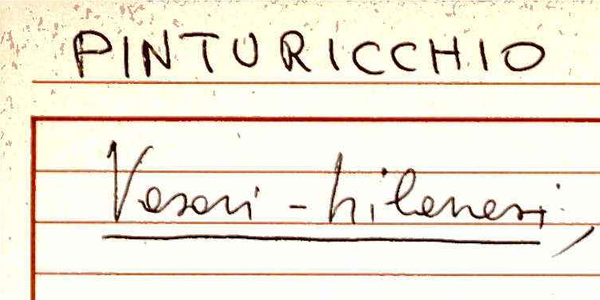 PINTURICCHIO
Vasari - Milanesi,